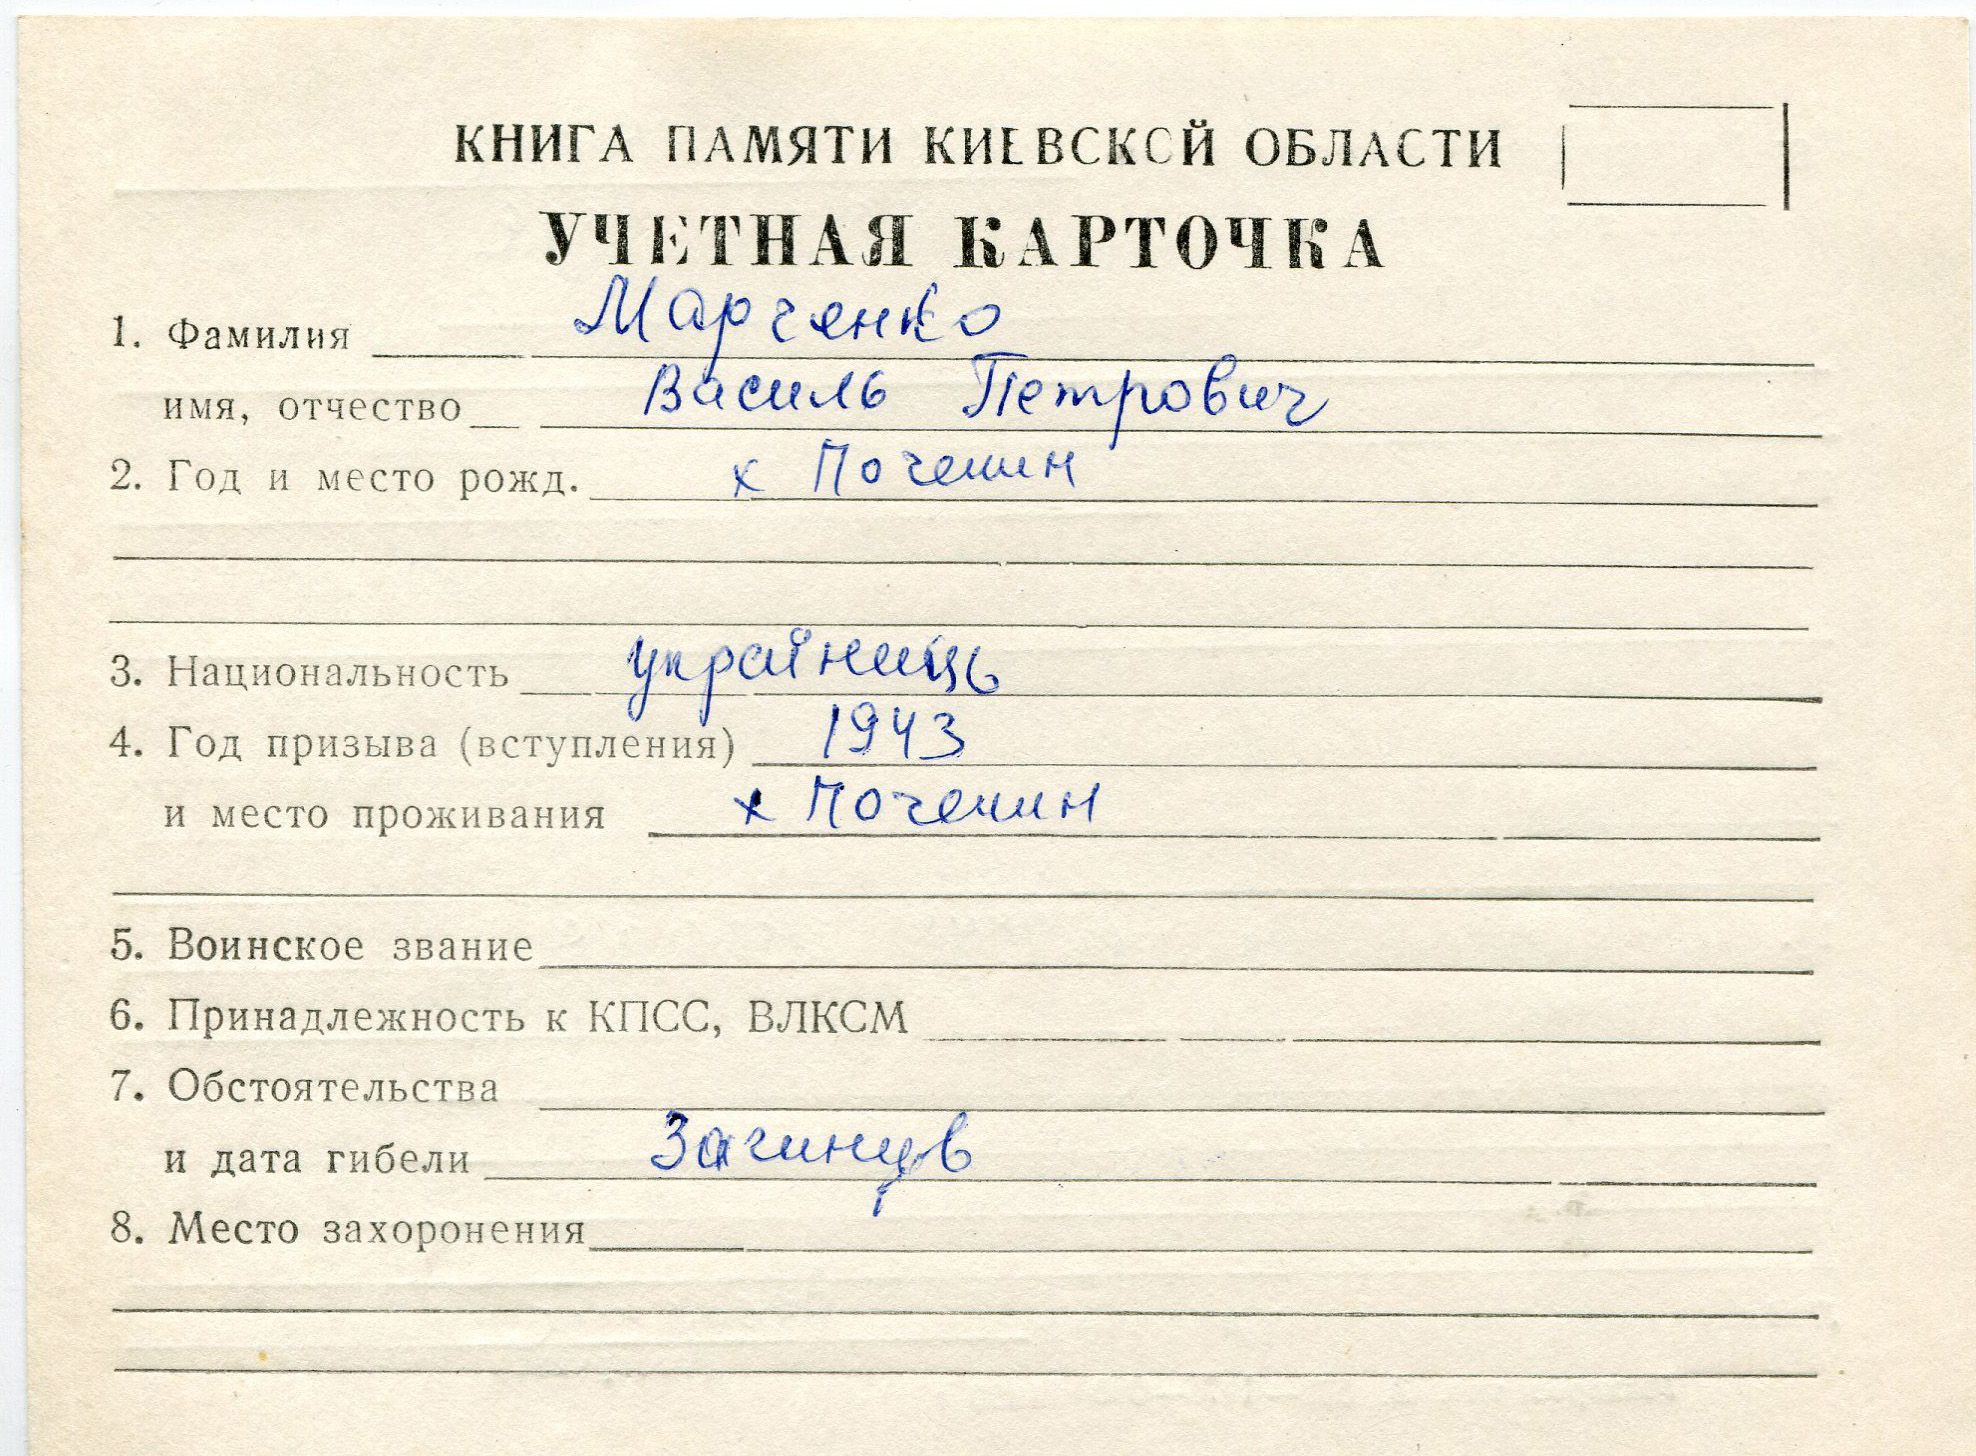 КНИГА ПАМЯТИ КИЕВСКОЙ ОБЛАСТИ
УЧЕТНАЯ КАРТОЧКА
1. Фамилия Марченко
имя, отчество Василь Петрович
2. Год и место рожд. х Почепин
3. Национальность українець
4. Год призыва (вступления) 1943
и место проживания х Почепин
5. Воинское звание
6. Принадлежность к КПСС, ВЛКСМ
7. Обстоятельства
и дата гибели Загинув
8. Место захоронения